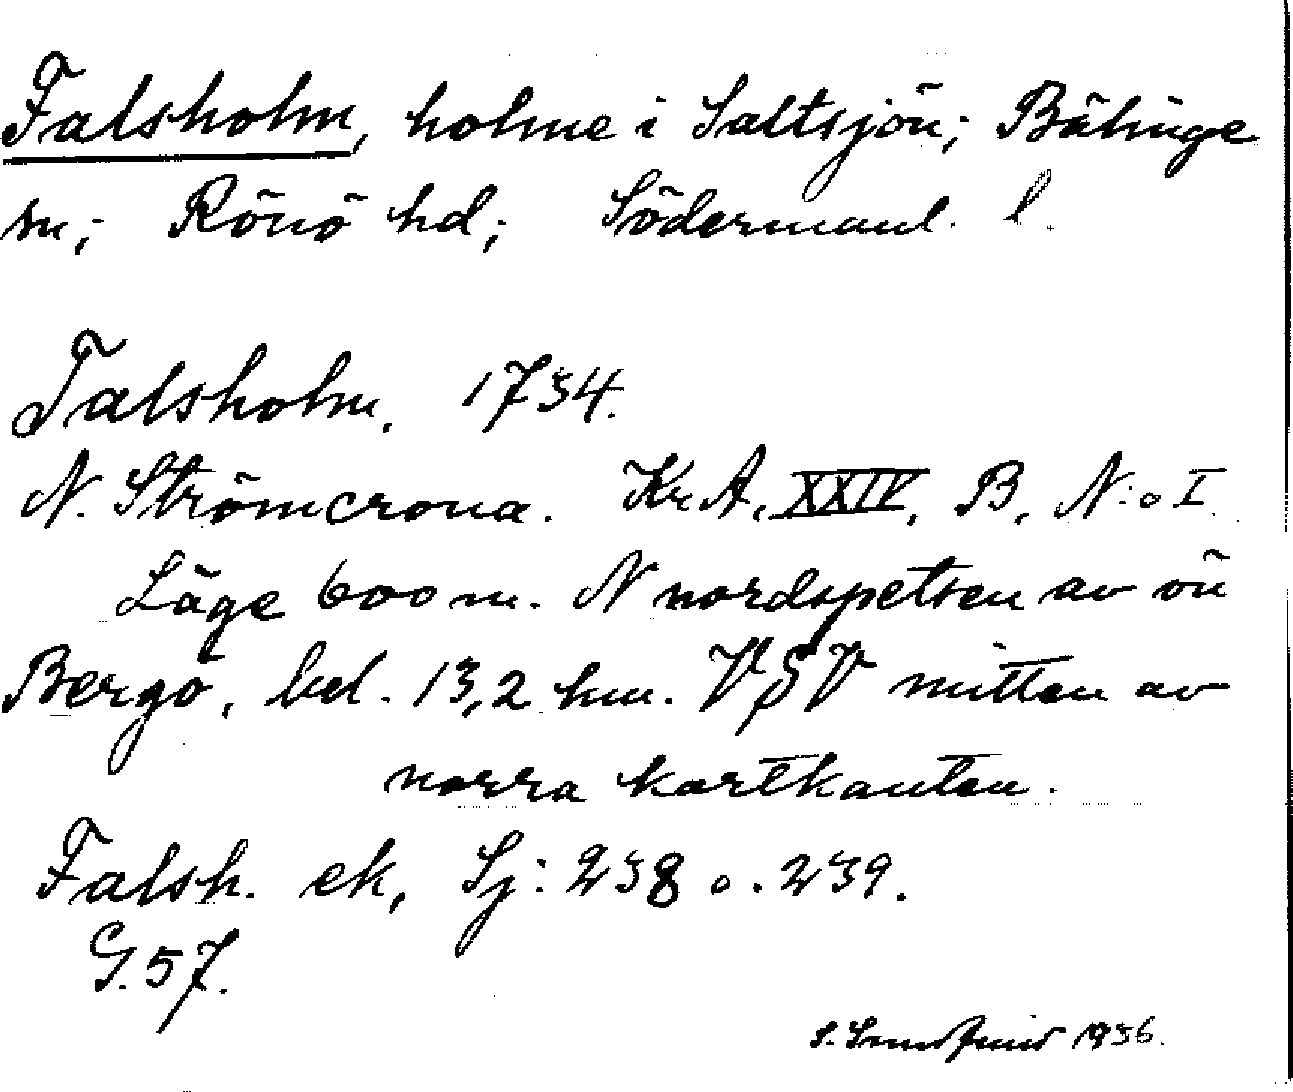 Falsholm, holme i Saltsjön; Bälinge
sn; Rönö hd; Södermanl. l.
Talsholm. 1734.
N. Strömcrona. Kr. A. XXIV, B, N:o I.
Läge 600 m. N nordspetsen av ön
Bergö, bel. 13,2 km. VSV mitten av
norra kartkanten.
Falsh. ek, Sj: 238 o. 239.
G. 57.
S. 1936.